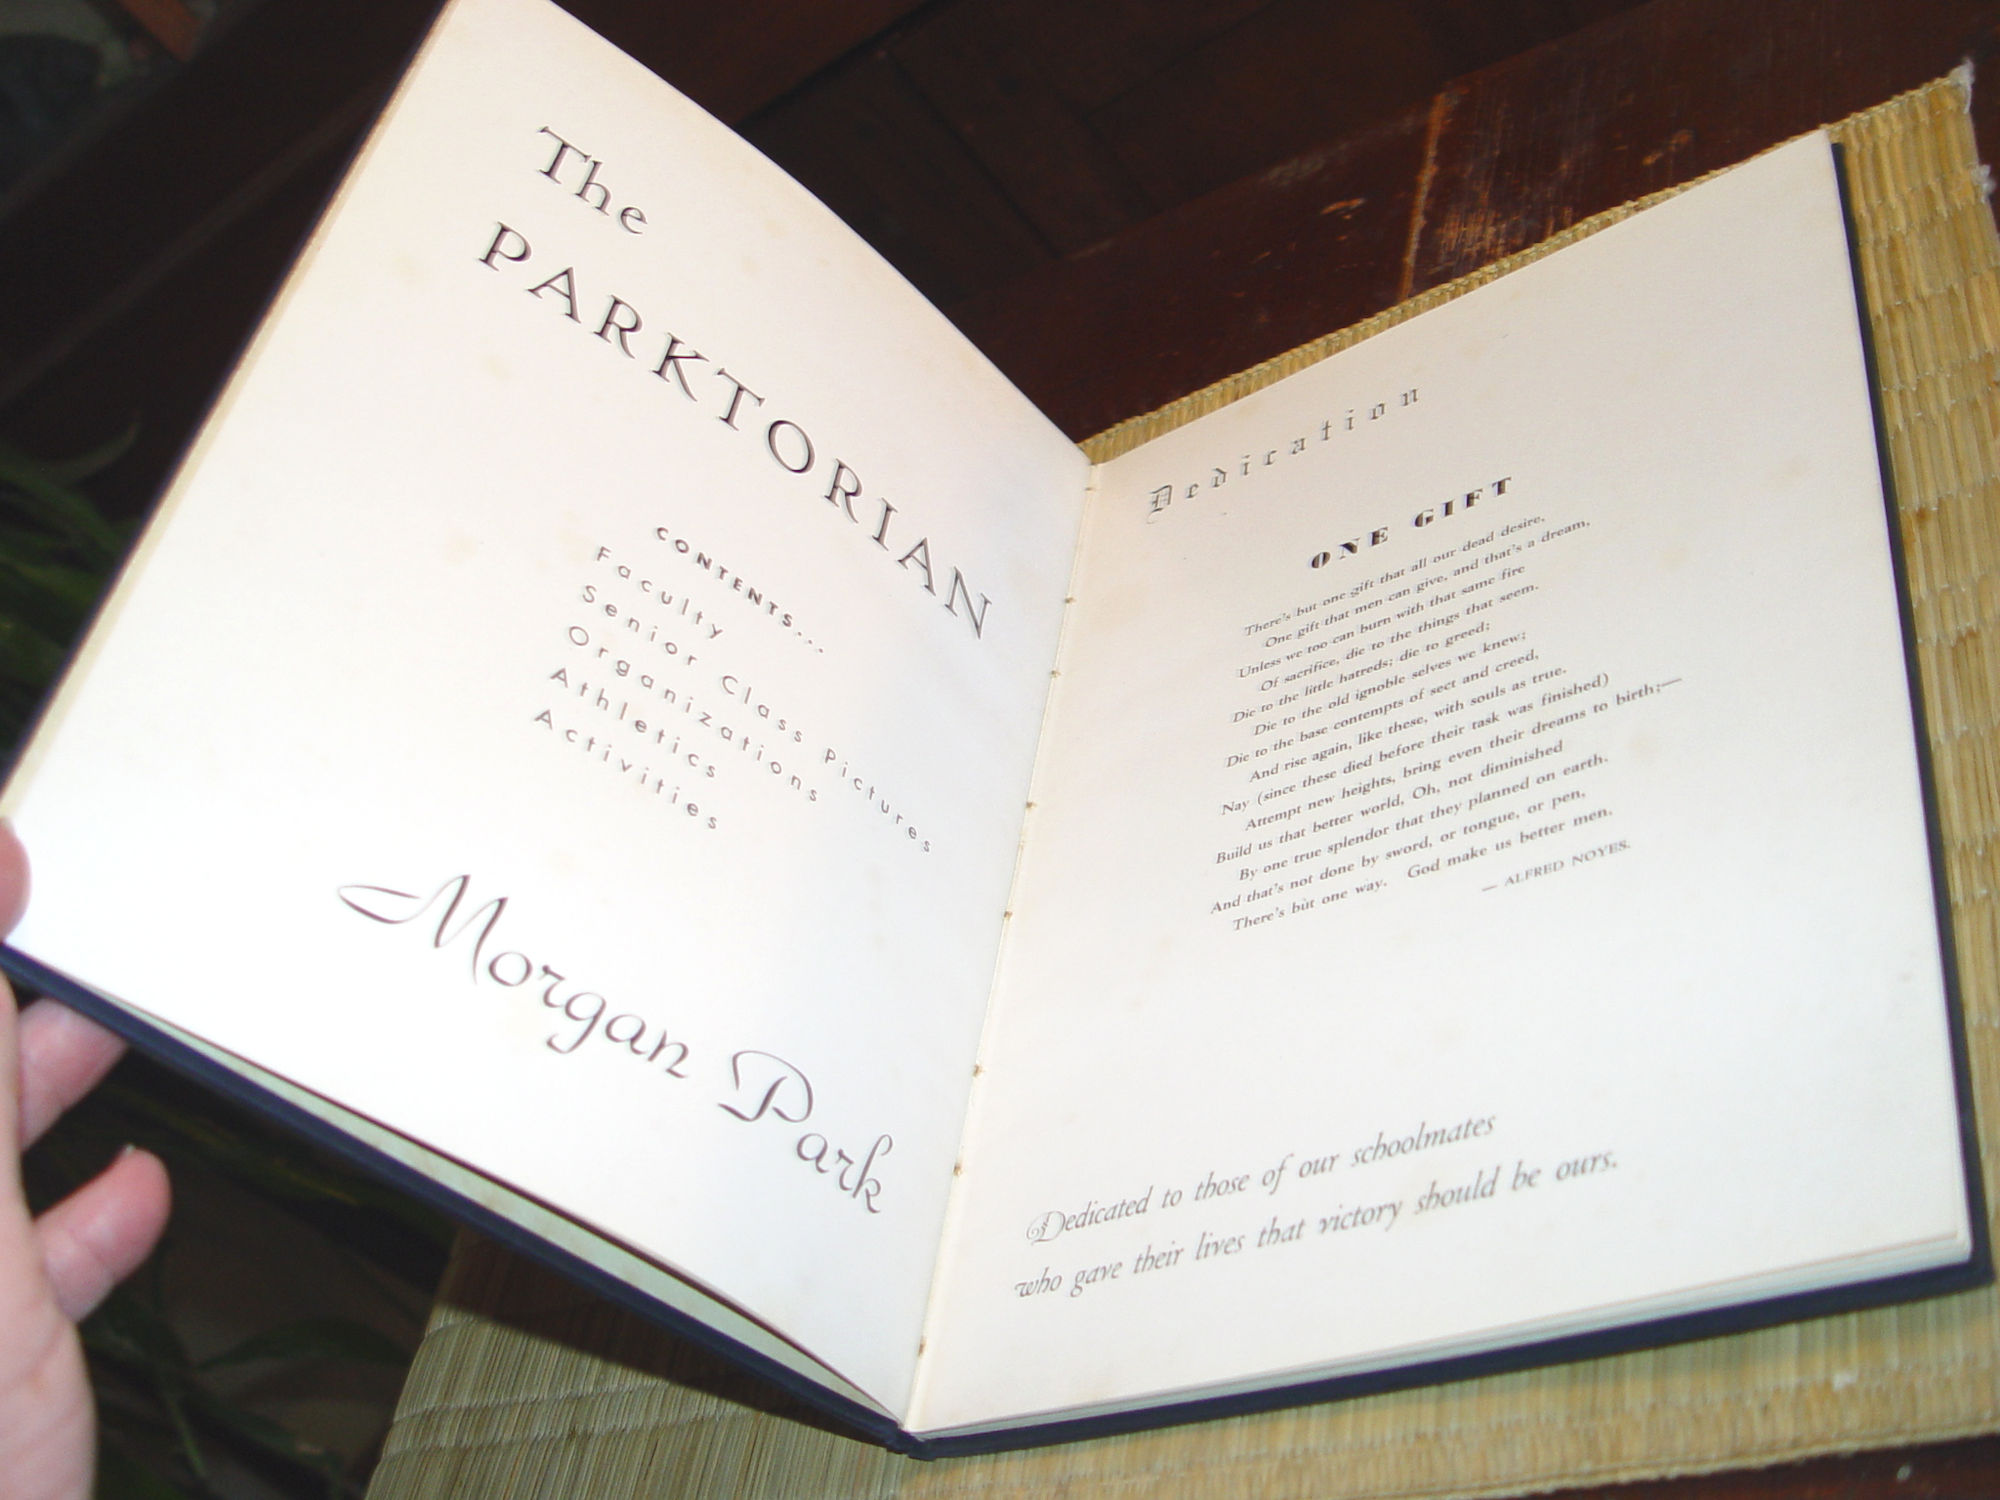 The
PARKTORIAN
CONTENTS...
Faculty
Senior Class Pictures
Organizations
Athletics
Activities
Morgan Park
Dedication
ONE GIFT
There's but one gift that all our dead desire,
One gift that men can give, and that's a dream,
Unless we too can burn with that same fire
Of sacrifice, die to the things that seem.
Die to the little hatreds; die to greed;
Die to the old ignoble selves we knew;
Die to the base contempts of sect and creed,
And rise again, like these, with souls as true.
Nay (since these died before their task was finished)
Attempt new heights, bring even their dreams to birth;—
Build us that better world, Oh, not diminished
By one true splendor that they planned on earth.
And that's not done by sword, or tongue, or pen,
There's but one way. God make us better men.
— ALFRED NOYES.
Dedicated to those of our schoolmates
who gave their lives that victory should be ours.